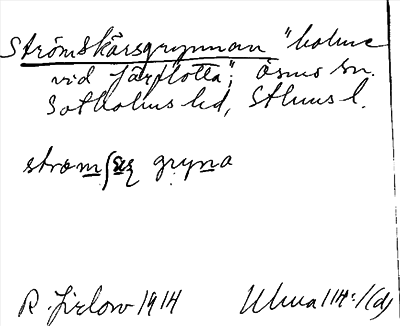 Strömskärsgrynnan "holme
vid Järflotta", Ösmo sn.
Sotholms hd, Sthms l.
strömʃæʂ gryna
R. Jirlow 1914 Ulma 111:1(d)